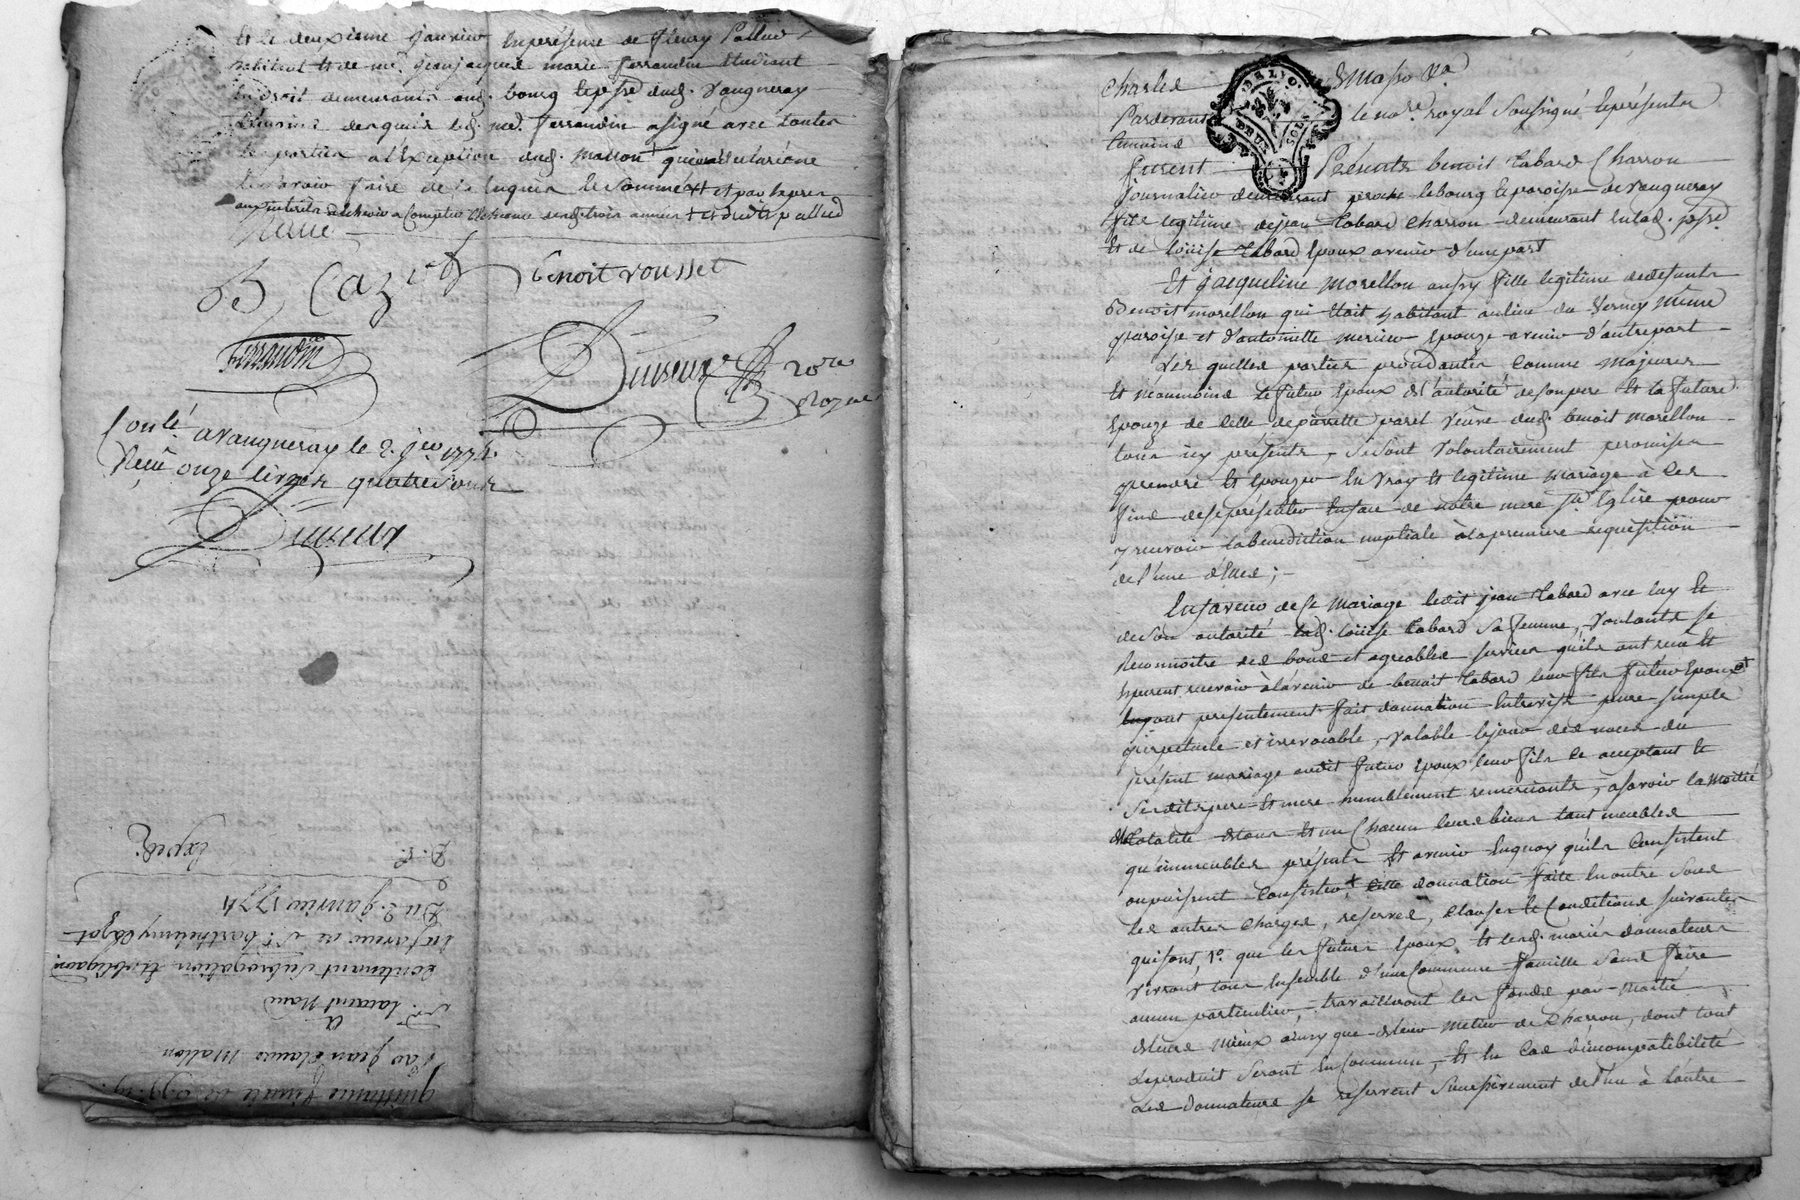 Et le deuxieme janvier en presense de fleury Pallud
habitant et de me. jean jacques marie ferrandin Etudiant
En droit demeurants aud. bourg et psse. dud. Vaugneray
témoins requis led. me. ferrandin a signé avec toutes
les parties a l'Exception dud. matton
faire de ce Enquis et sommé et par
et dud. pallud
B Cazot
benoit rousset
ferrandin
nore
royal
Conlé. a vaugneray le 2. jer. 1774.
Reçu onze livres quatre sous
quittance finale de
Par jean claude matton
A
St. Laurent
Contenant subrogation et obligaon.
En faveur de St. barthelemy Cazot
Du 2. janvier 1774
Exped.
Charles
DE LYON
Pardevant le nore. royal soussigné et présents
temoins
furent Présents benoit tabard Charron
journalier demeurant proche le bourg et paroisse de vaugneray
fils legitime de jean tabard Charron demeurant en lad. psse.
Et de Loüise tabard Epoux avenir d'une part
Et jacqueline morellon aussy fille legitime de defunts
Benoit morellon qui Etoit habitant au lieu du Verney même
paroisse et d'antoinette mercier Epouze avenir d'autre part
Les quelles parties procedantes Comme majeures
Et néanmoins le futur Epoux de l'autorité de son pere Et la future
Epouze de Celle de pierrette paret veuve dud. benoit morellon
tous icy présents, se sont volontairement promises
prendre Et Epouzer En vray et legitime mariage à Ces
fins de se présenter En face de notre mere Ste. Eglise pour
y recevoir la benediction nuptiale à la premiere réquisition
de l'une d'Elles;
En faveur de Ce mariage ledit jean tabard avec luy Et
de son autorité lad. Loüise tabard sa femme, voulants se
Reconnoitre des bons et agreables services qu'ils ont recu Et
Esperent recevoir à l'avenir de benoit tabard leur fils futur Epoux
ont présentement fait donnation Entrevifs pure simple
perpetuelle et irrevocable, valable le jour des noces du
présent mariage audit futur Epoux leur fils Ce acceptant Et
sesdits pere Et mere humblement remerciants, a savoir la moitié
de tous Et un Chacun leurs biens tant meubles
qu'immeubles présents Et avenir En quoy qu'ils Consistent
ou puissent Consister, donnation faite En outre sous
les autres Charges, reserves, Clauses Et Conditions suivantes
qui sont 1o. que les futurs Epoux, Et lesd. mariés donnateurs
vivront tous Ensemble d'une Commune famille sans faire
aucun particulier, travailleront les fonds par moitié
de leurs mieux ainsy que de leur métier de Charron, dont tout
le produit seront En Commun, Et En Cas d'incompatibilité
Les donnateurs se reservent de l'un à l'autre